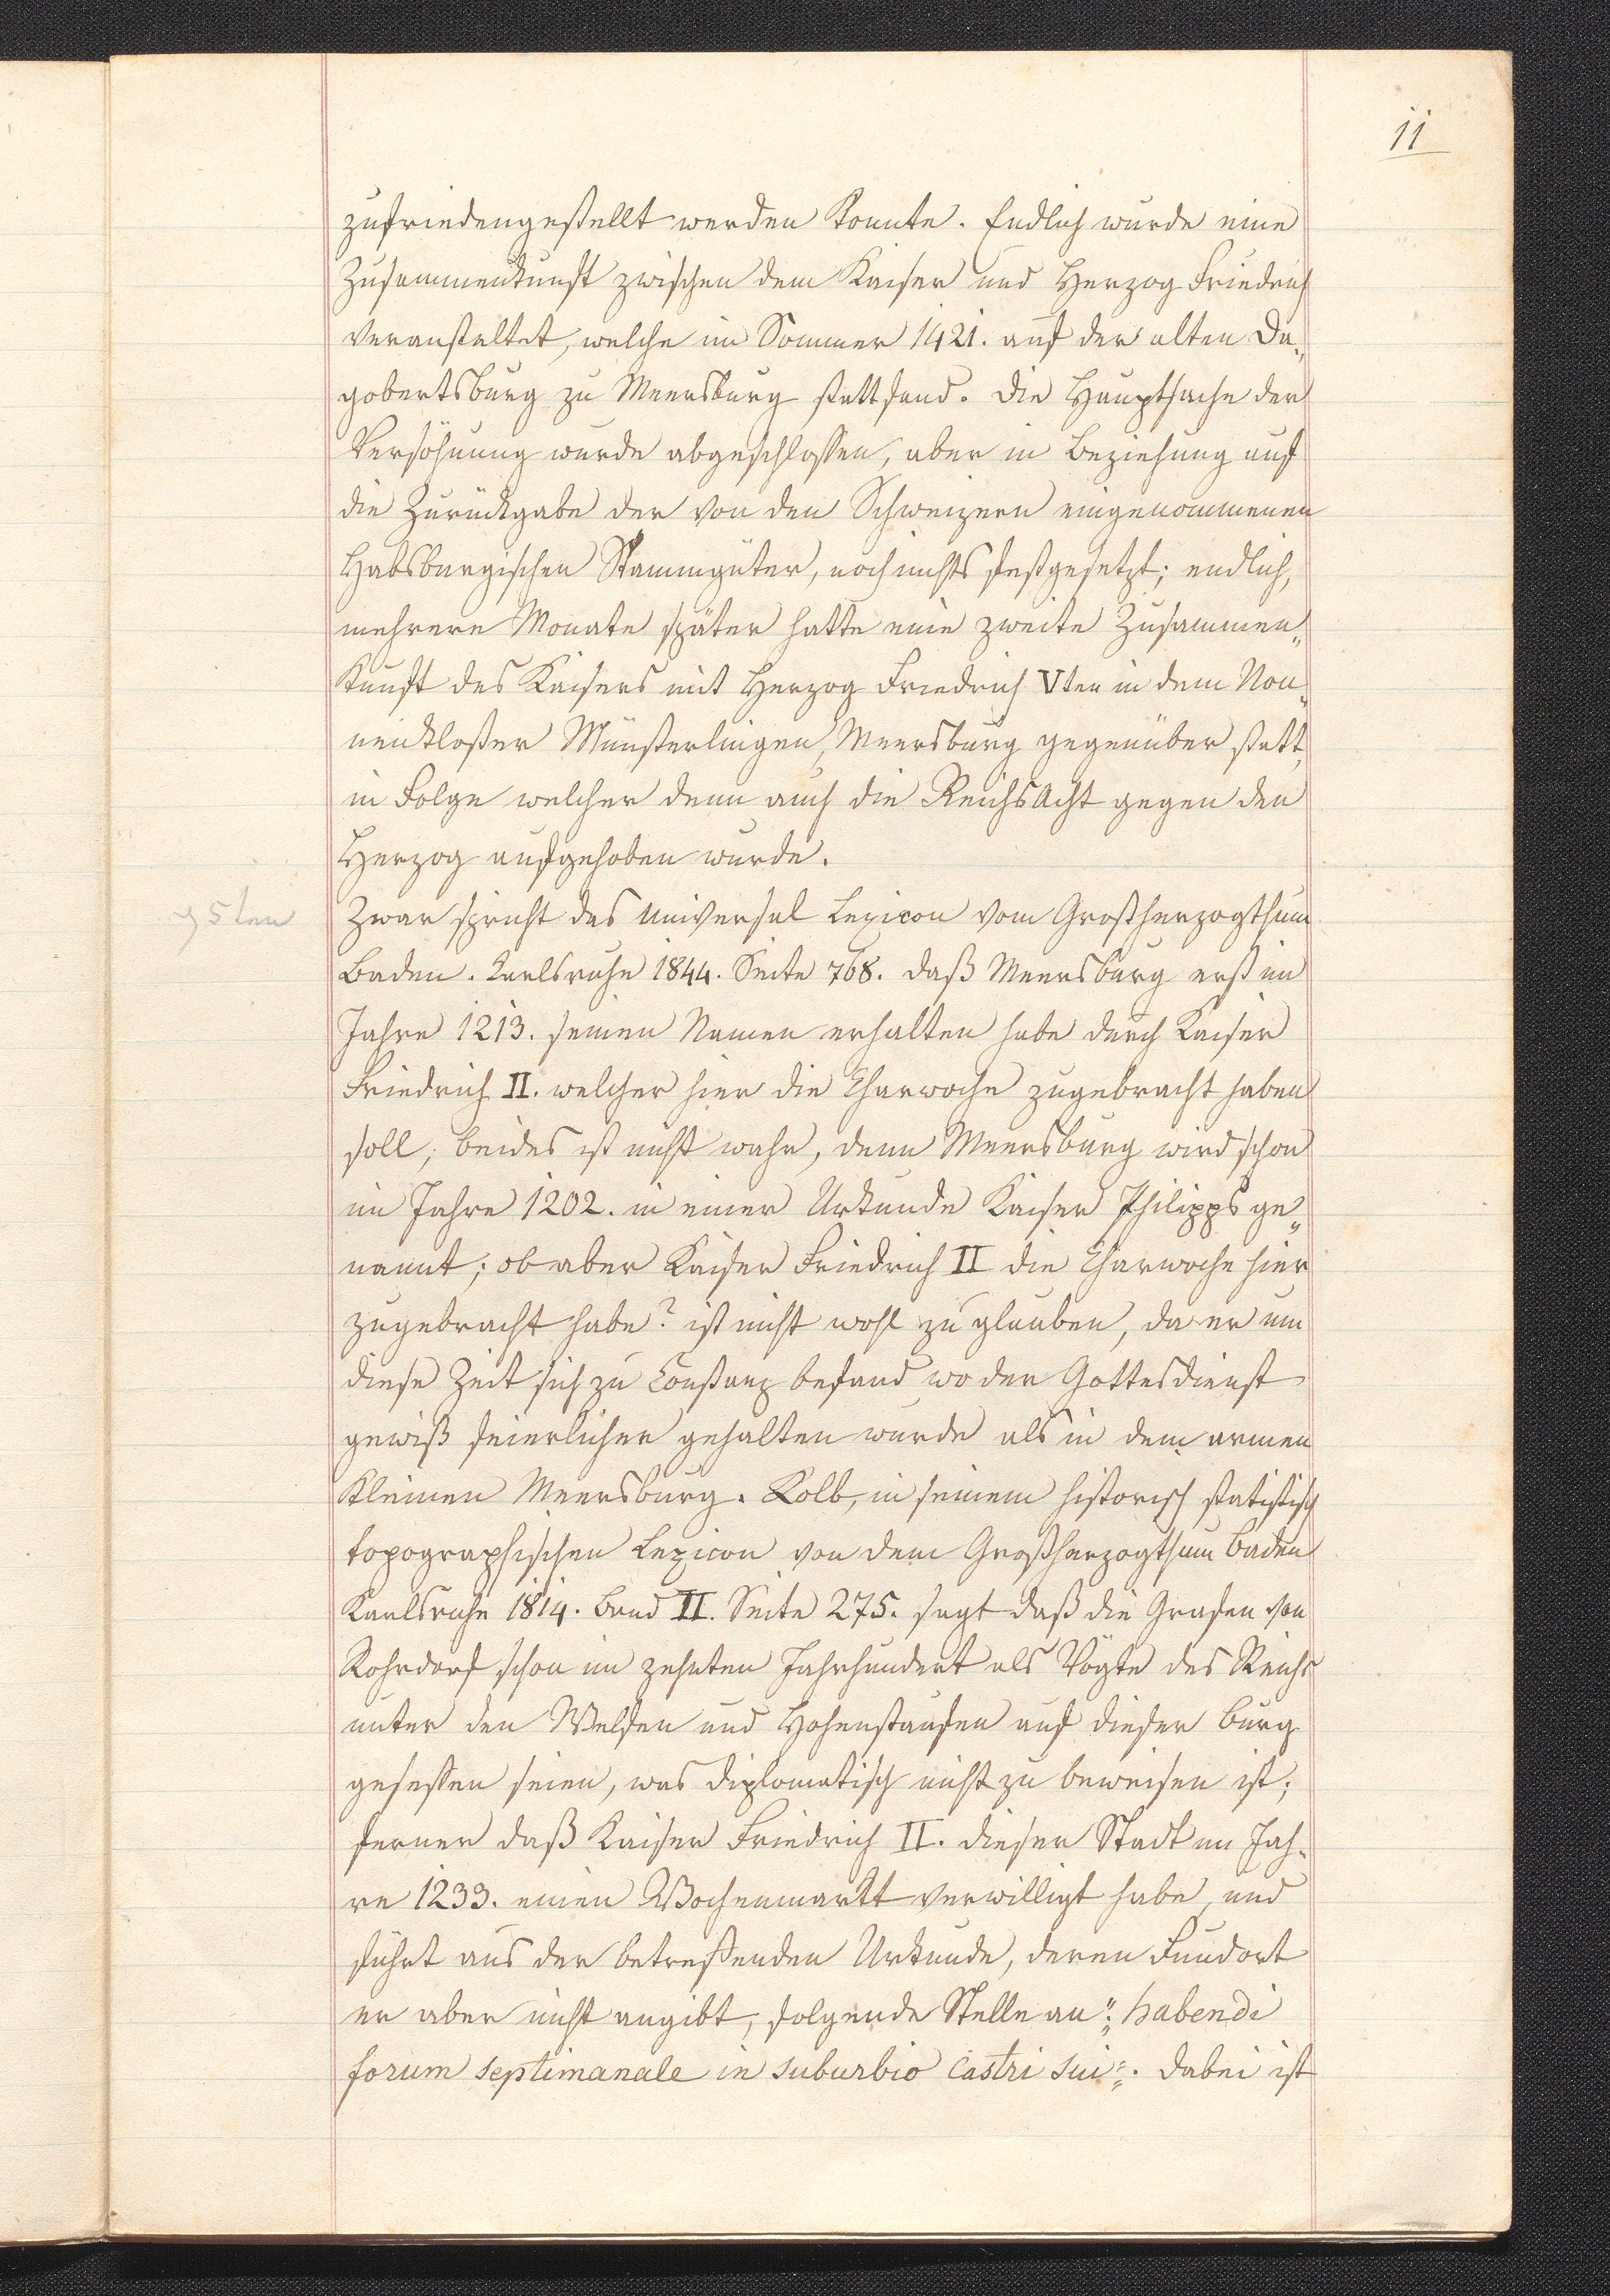 11
zufriedengestellt werden konnte. Endlich wurde eine
Zusammenkunft zwischen dem Kaiser und Herzog Friedrich
veranstaltet, welche im Sommer 1421. auf der alten Da„
gobertsburg zu Meersburg stattfand. Die Hauptsache der
Versöhnung wurde abgeschlossen, aber in Beziehung auf
die Zurückgabe der von den Schweizern eingenommenen
Habsburgischen Stammgüter, noch nichts festgesetzt; endlich,
mehrere Monate später hatte eine zweite Zusammen„
kunft des Kaisers mit Herzog Friedrich Vten in dem Non„
nenkloster Münsterlingen, Meersburg gegenüber statt,
in Folge welcher denn auch die ReichsAcht gegen den
Herzog aufgehoben wurde.
5ten
Zwar spricht das Universal Lexicon vom Großherzogthum
Baden. Karlsruhe 1844. Seite 768. daß Meersburg erst im
Jahre 1213. seinen Namen erhalten habe durch Kaiser
Friedrich II. welcher hier die Charwoche zugebracht haben
soll; beides ist nicht wahr, denn Meersburg wird schon
im Jahre 1202. in einer Urkunde Kaiser Philipps ge„
nannt; ob aber Kaiser Friedrich II die Charwoche hier
zugebracht habe? ist nicht wohl zu glauben, da er um
diese Zeit sich zu Constanz befand wo der Gottesdienst
gewiß feierlicher gehalten wurde als in dem armen
kleinen Meersburg. Kolb, in seinem historisch statistisch
topographischen Lexicon von dem Großherzogthum Baden
Karlsruhe 1814. Band II. Seite 275. sagt daß die Grafen von
Rohrdorf schon im zehnten Jahrhundert als Vögte des Reichs
unter den Welfen und Hohenstaufen auf dieser Burg
gesessen seien, was diplomatisch nicht zu beweisen ist;
ferner daß Kaiser Friedrich II. dieser Stadt im Jah„
re 1233. einen Wochenmarkt verwilligt habe, und
führt aus der betreffenden Urkunde, deren Fundort
er aber nicht angibt, folgende Stelle an: „habendi
forum septimanale in suburbio Castri sui“. Dabei ist